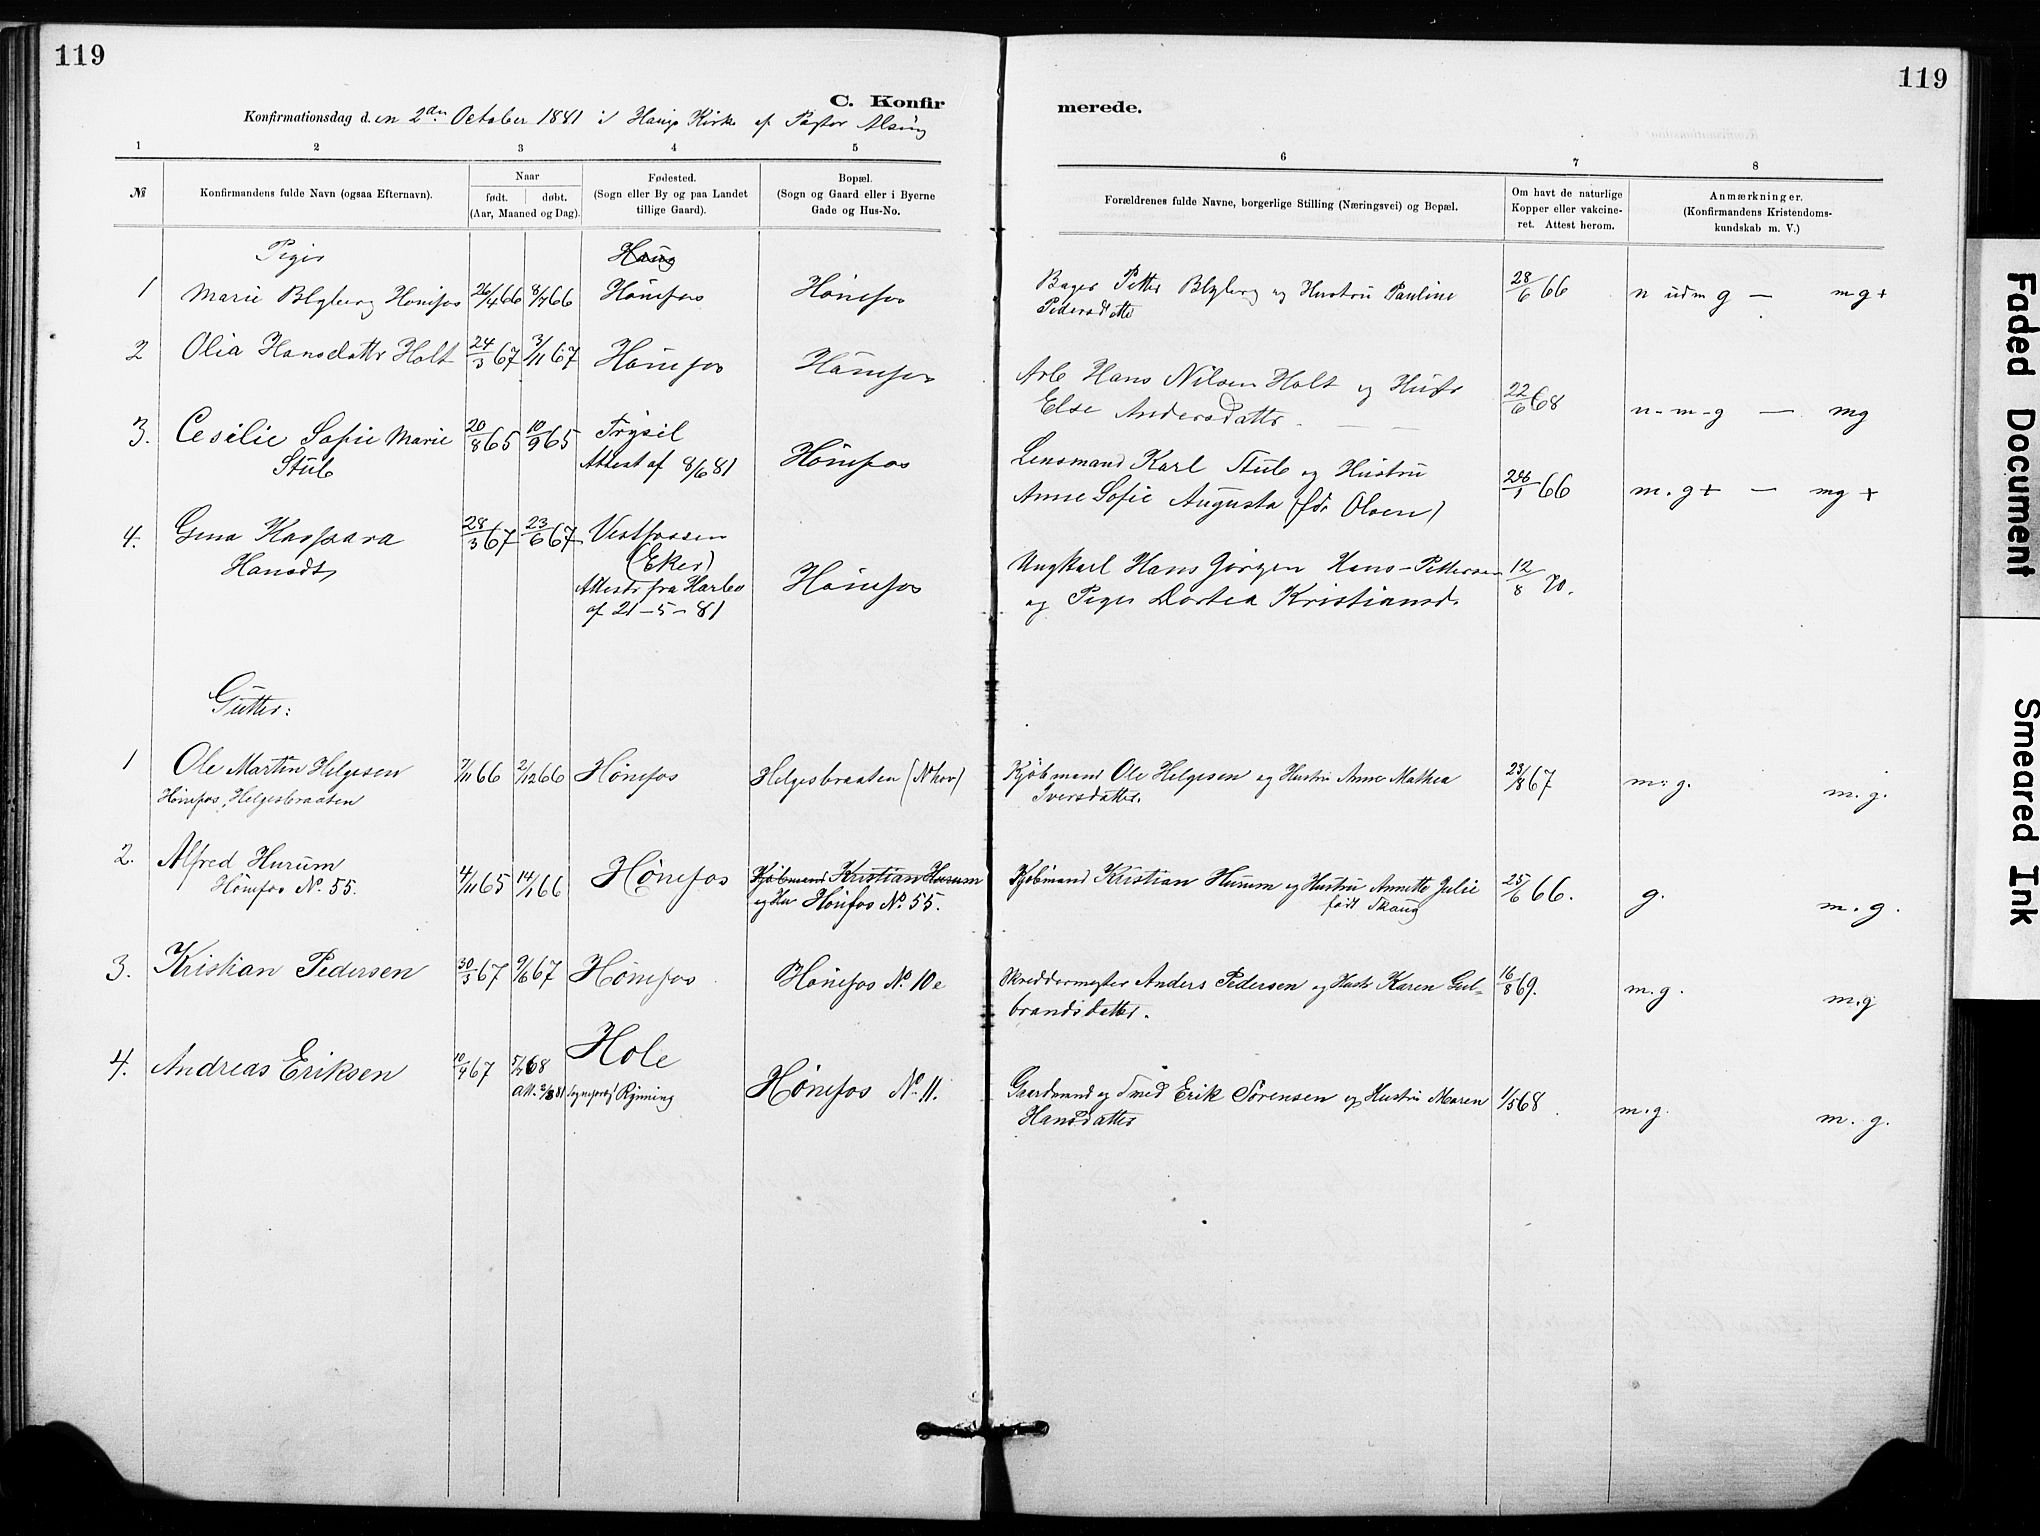 119
119
C. Konfir
merede.
Konfirmationsdag d. en 2den October 1881 i Haugs Kirke af Pastor Alsing
1
2
3
4
5
6
7
8
№
Konfirmandens fulde Navn (ogsaa Efternavn).
Naar
født.
døbt.
(Aar, Maaned og Dag).
Fødested.
(Sogn eller By og paa Landet
tillige Gaard).
Bopæl.
(Sogn og Gaard eller i Byerne
Gade og Hus-No.
Forældrenes fulde Navne, borgerlige Stilling (Næringsvei) og Bopæl.
Om havt de naturlige
Kopper eller vakcine-
ret. Attest herom.
Anmærkninger.
(Konfirmandens Kristendoms-
kundskab m. V.)
Piger
Haug
1 Marie Blyberg Hønefos 26/4 66 8/7 66 Hønefos Hønefos Bager Petter Blyberg og Hustru Pauline 28/6 66 n udm g — mg+
Pedersdatter
2 Olia Hansdattr Holt 24/3 67 3/11 67 Hønefos Hønefos Arb Hans Nilsen Holt og Hustr 22/6 68 n-m-g — mg
Else Andersdattr. — —
3. Cesilie Sofie Marie 20/8 65 10/9 65 Trysil Hønefos Lensmand Karl Stub og Hustru 66 m.g+ — mg+
Stub Attest af 8/6 81 Anne Sofie Augusta (fdt Olsen)
4. Gina Kaspara 28/3 67 23/6 67 Vestfossen Hønefos Ungkarl Hans Jørgen Hans-Pettersen 12/8 70.
Hansdt (Eker) og Pige Dortea Kristiansd.
Attest fra
af 21-5-81
Gutter:
1 Ole Martin Helgesen 7/11 66 2/12 66 Hønefos Helgesbraaten (Nhov) Kjøbmand Ole Helgesen og Hustru Anne Mathea 23/8 67 m.g. m.g.
Hønefos, Helgesbraaten Iversdatter.
2. Alfred Hurum 4/11 65 14/1 66 Hønefos Kjøbmand Kristian Hurum Kjøbmand Kristian Hurum og Hustru Annette Julie 25/6 66. g. m.g.
Hønefos No. 55. og Hu Hønefos No. 55. født Skaug
3. Kristian Pedersen 30/3 67 9/6 67 Hønefos Hønefos No. 10e Skreddermester Anders Pedersen og Hustr Karen Gul- 16/8 69. m.g. m.g
brandsdatter.
4. Andreas Eriksen 10/9 67 5/4 68 Hole Hønefos No. 11. Gaardmand og Smed Erik Sørensen og Hustru Maren 1/5 68 m.g. m.g.
Att. 2/8 81 Sognepræst Rynning Hansdatter
Faded Document
Smeared Ink